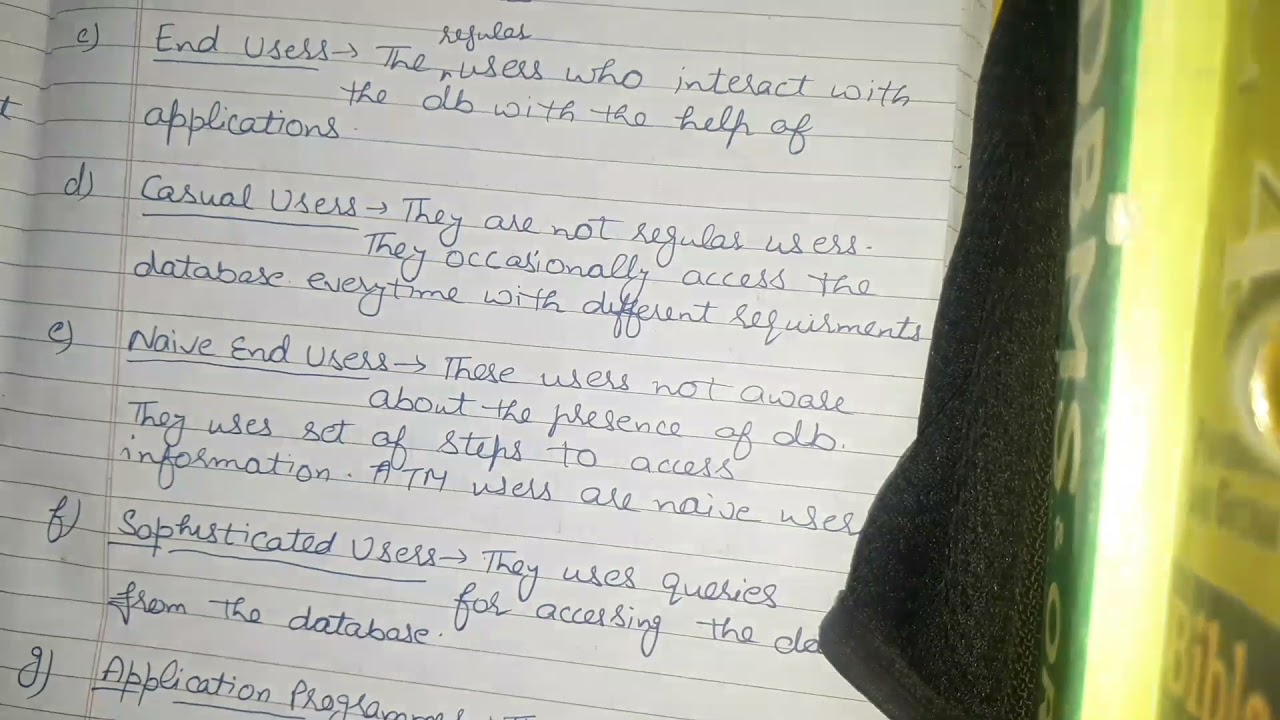 c) End Users → The regular users who interact with
the db with the help of
applications.
d) Casual Users → They are not regular users.
They occasionally access the
database everytime with different requirments
e) Naive End Users → These users not aware
about the presence of db.
They uses set of steps to access
information. ATM users are naive user
f) Sophisticated Users → They uses queries
for accessing the da
from the database.
g) Application Programme
t
DBMS
Bible